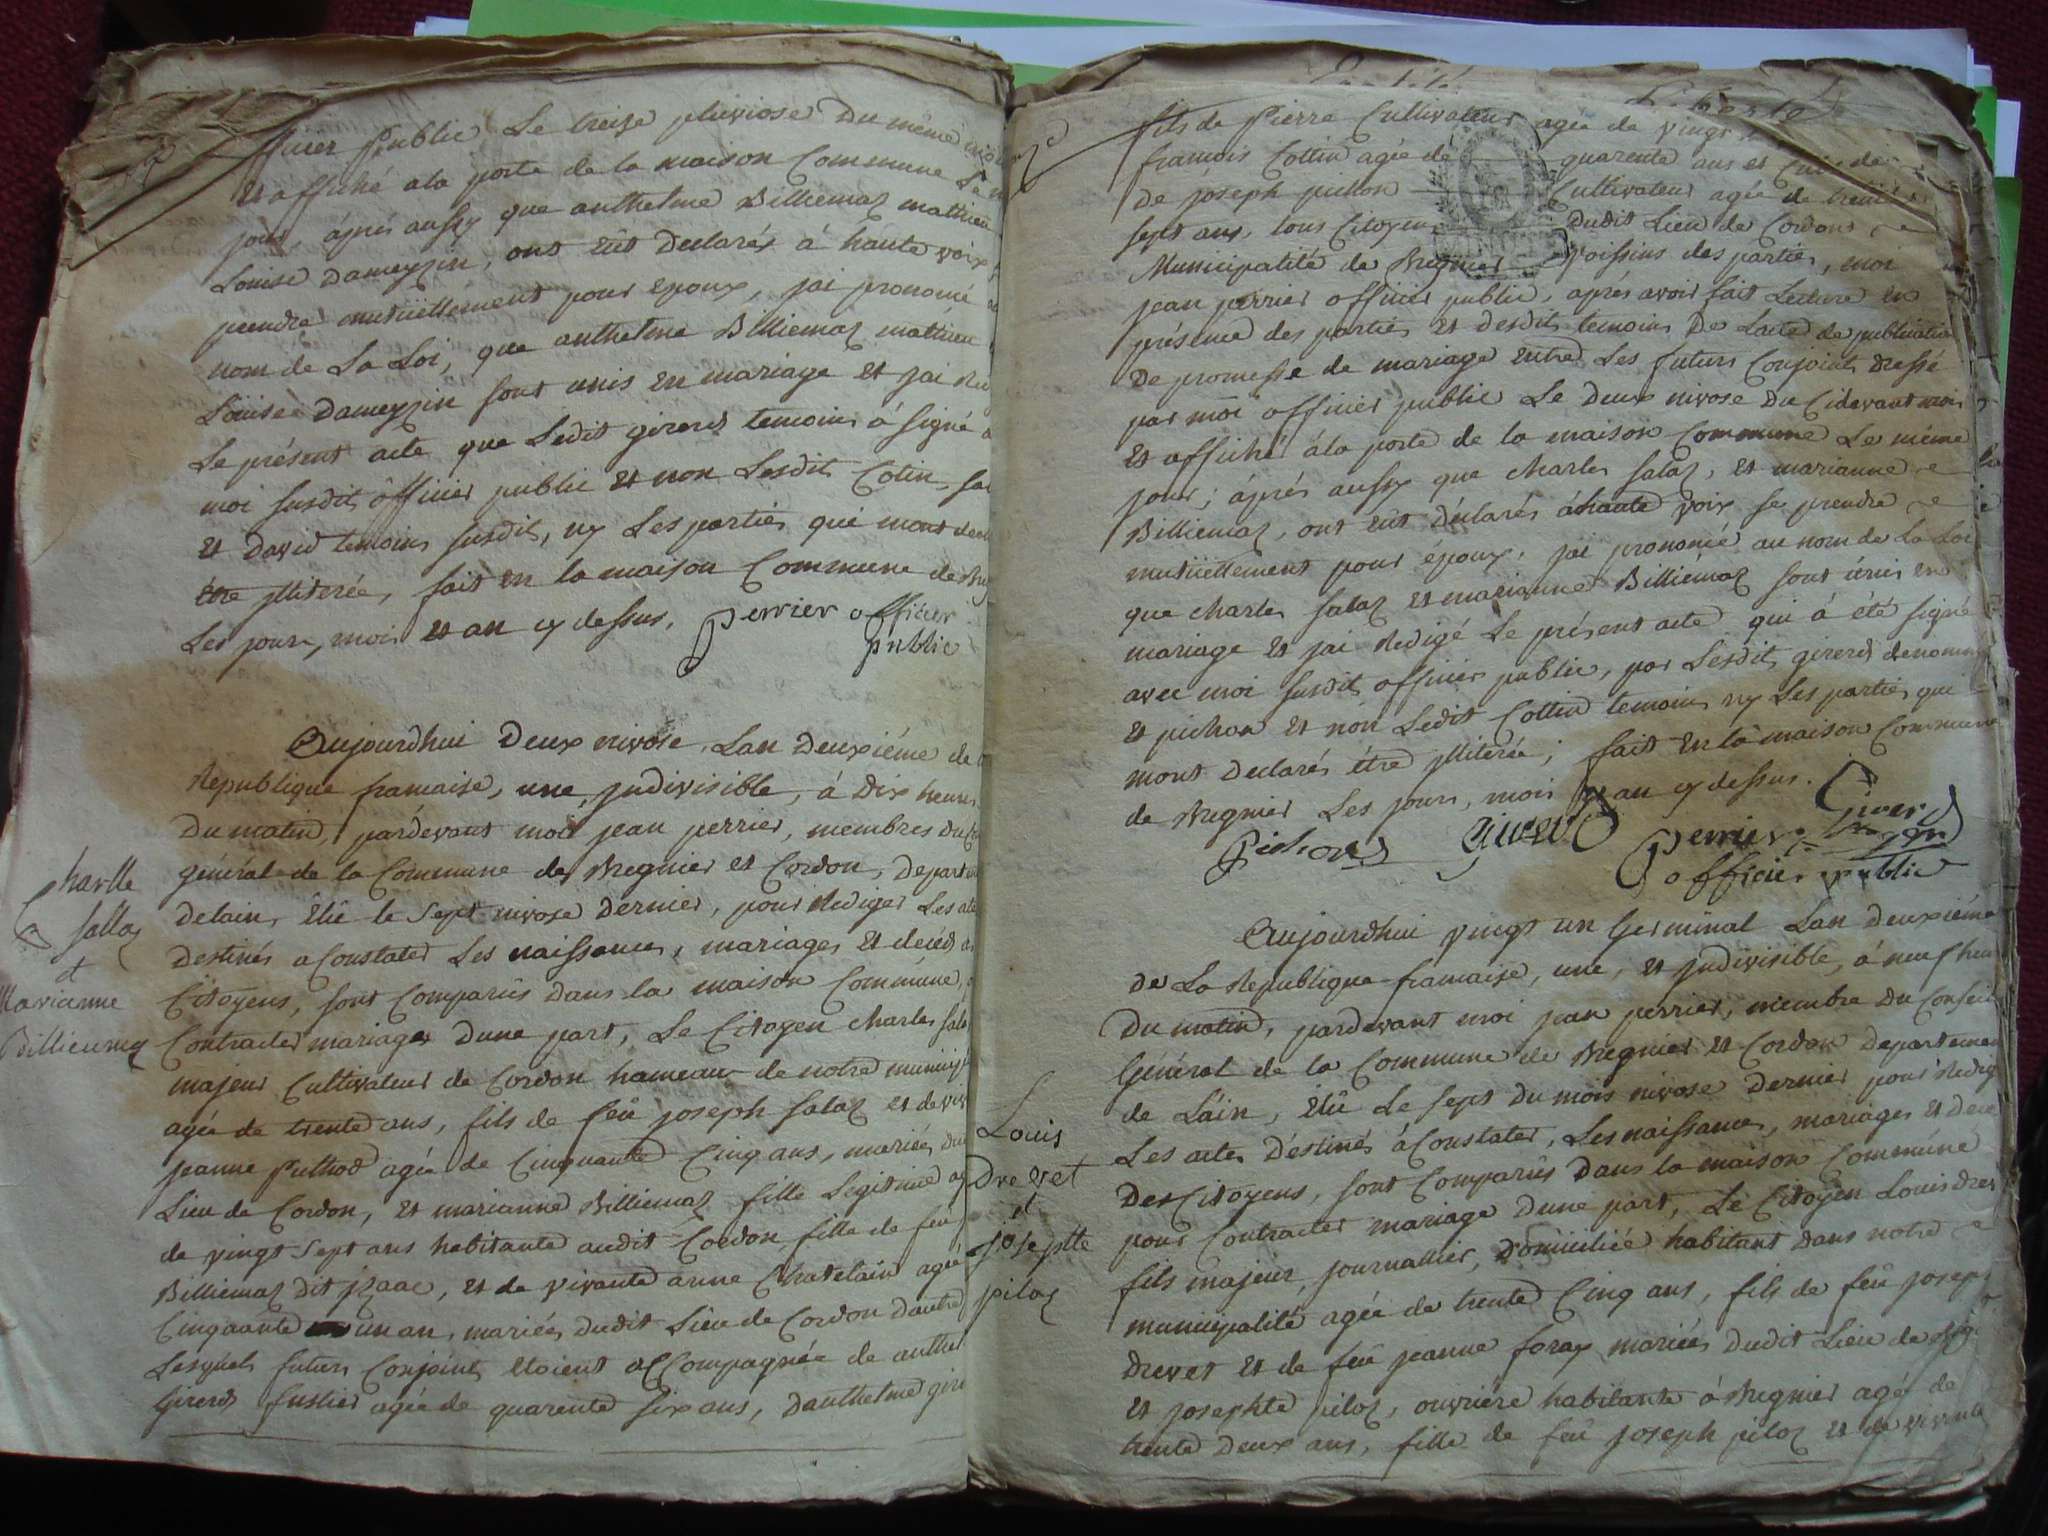 officier Public Le treize pluviose Du même
Et affiché ala porte de la maison Commune Le
jour, áprés aussy que anthelme Billiemaz mathieu
Louise Dameyzin, ont Eût Declarés á haute voix
prendre mutüellement pour Epoux, jai prononcé
nom de La Loi, que anthelme Billiemaz mathieu
Loüise Dameyzin sont unis En mariage Et jai
Le présent acte que Ledit girerd temoins á signé
moi susdit officier public Et non Lesdits Cotin
Et David temoins susdits, ny Les parties qui mont
être jlliterées, fait En la maison Commune de
Les jours, mois Et an cy dessus. perrier officier
public
Aujourdhui Deux nivose, Lan Deuxiéme de
Republique francaise, une, jndivisible, à Dix heures
Du matin, pardevant moi jean perrier, membres Du
général de la Commune de Bregnier Et Cordon,
Delain, Elû le Sept nivose Dernier, pour Rediger Les
Destinés aConstater Les naissances, mariages Et decés
Citoyens, sont Comparûs Dans la maison Commune,
Contracter mariages Dune part, Le Citoyen Charles
majeur Cultivateur de Cordon hameau de notre
agée de trente ans, fils de feû joseph Salaz Et de
jeanne Puthod agée de Cinquante Cinq ans, mariés
Lieu de Cordon, Et marianne Billiemaz fille Legitime
de vingt Sept ans habitante audit Cordon, fille de feû
Billiemaz dit jzaac, Et de vivante anne Chatelain agée
Cinquante un an, mariés Dudit Lieu de Cordon Dautre
Lesquels futurs Conjoints Etoient acCompagnée de
Girerd fustier agée de quarente Six ans, Danthelme
Charlle
Sallaz
et
Marianne
Billiemaz
fils de Pierre Cultivateur agée de vingt
francois Cottin agée de quarente ans Et
De joseph pichon Cultivateur agée de
sept ans, tous Citoyens Dudit Lieu de Cordon
Municipalité de Bregnier Voissins des parties, moi
jean perrier officier public, aprés avoir fait Lecture En
présence des parties Et desdits temoins De Lacte de publication
De promesse de mariage Entre Les futurs Conjoints Dressé
par moi officier public Le Deux nivose Du Cidevant mois
Et affiché ála porte de la maison Commune Le méme
jour; áprés aussy que Charles Salaz, Et marianne
Billiemaz, ont Eût Déclarés áhaute voix se prendre
mutüellement pour époux, jai prononcé au nom de La Loi
que Charles Salaz Et marianne Billiémaz sont ünis En
mariage Et jai Redigé Le présent acte qui á été signé
avec moi susdit officier public, par Lesdits girerd
Et pichon Et nón Ledit Cottin temoin ny Les parties qui
mont Declarés étre jlliterée; fait En la maison Commune
de Bregnier Les jours, mois Et an cy dessus.
Pichond Girerd perrier Girerd
officier public
Aujourdhui vingt un Germinal Lan Deuxiéme
De La Republique francaise, une, Et jndivisible, á neuf
Du matin, pardevant moi jean perrier, membre Du Conseil
Général de la Commune de Bregnier Et Cordon
de Lain, Elû Le Sept Du mois nivose Dernier pour
Les actes Déstinés áConstater, Les naissances, mariages Et
Des Citoyens, sont Comparûs Dans la maison Commúné
pour Contracter mariage Dune part, Le Citoyen Louis
fils majeur, journallier, Domiciliée habitant Dans notre
municipalité agée de trente Cinq ans, fils de feû
Drevet Et de feû jeanne foray mariés Dudit Lieu de
Et josephte piloz, ouvriére habitante á Bregnier agée de
trente Deux ans, fille de feû joseph piloz Et de
Louis
Drevet
et
josephte
piloz